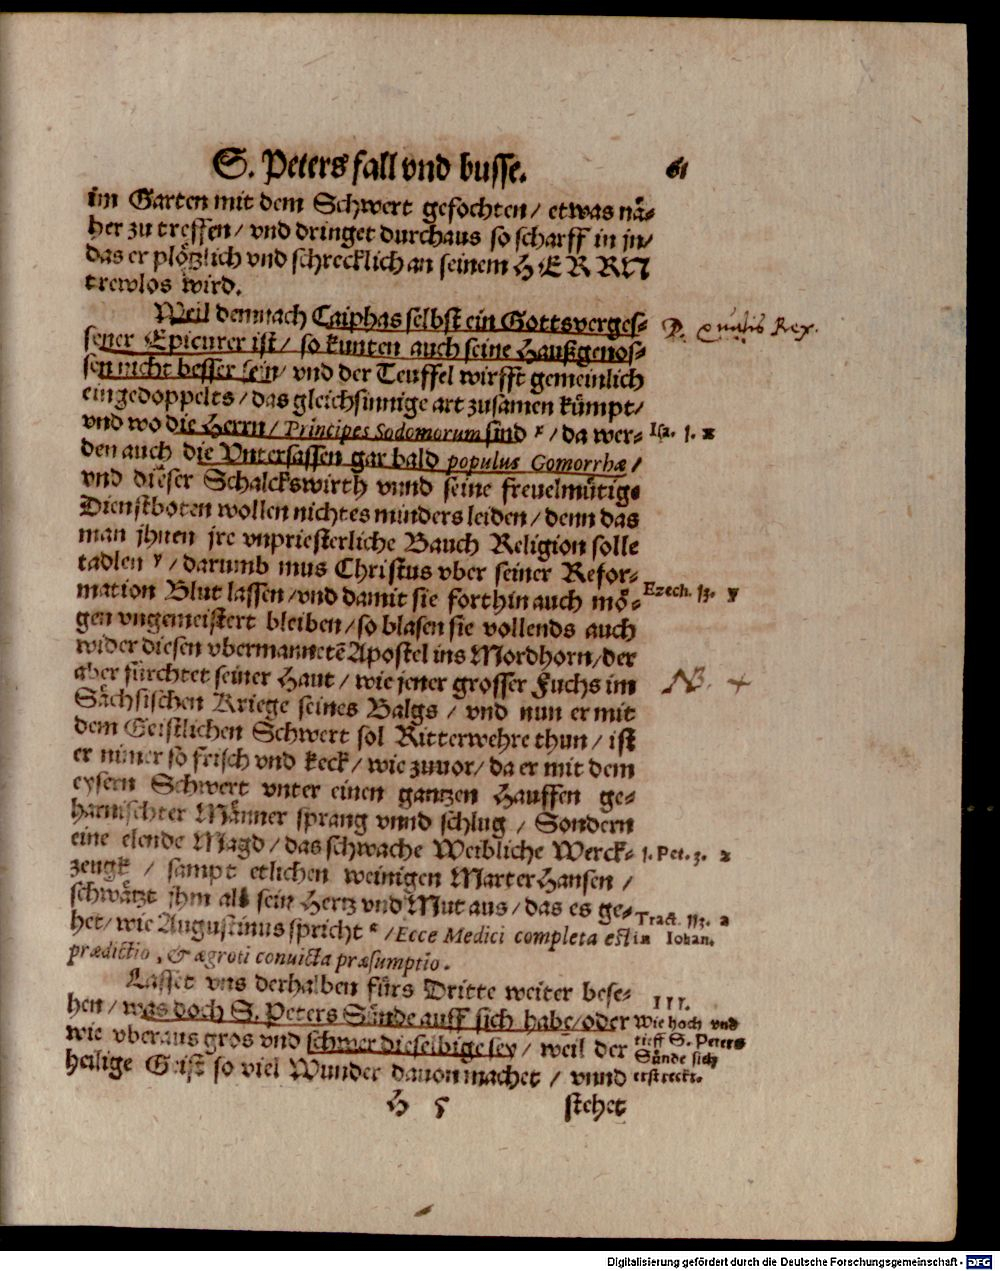 S. Peters fall vnd busse. 61
im Garten mit dem Schwert gefochten/ etwas nå-
her zu treffen/ vnd dringet durchaus so scharff in jn/
das er plötzlich vnd schrecklich an seinem HERRN
trewlos wird.
Weil demnach Caiphas selbst ein Gottsverges-
sener Epicurer ist/ so kunten auch seine Haußgenos-
sen nicht besser sein/ vnd der Teuffel wirfft gemeinlich
eingedoppelts/ das gleichsinnige art zusamen kümpt/
vnd wo die Herrn/ Principes Sodomorum sind x/ da wer- Isa. 1. x
den auch die Vntersassen gar bald populus Gomorrhæ/
vnd dieser Schalckswirth vnnd seine freuelmütige
Dienstboten wollen nichtes minders leiden/ denn das
man jhnen jre vnpriesterliche Bauch Religion solle
tadlen y/ darumb mus Christus vber seiner Refor-
mation Blut lassen/ vnd damit sie forthin auch mö- Ezech. 13. y
gen vngemeistert bleiben/ so blasen sie vollends auch
wider diesen vbermannetē Apostel ins Mordhorn/ der
aber fürchtet seiner Haut/ wie jener grosser Fuchs im NB. +
Sächsischen Kriege seines Balgs/ vnd nun er mit
dem Geistlichen Schwert sol Ritterwehre thun/ ist
er nimer so frisch vnd keck/ wie zuuor/ da er mit dem
eysern Schwert vnter einen gantzen Hauffen ge-
harnischter Männer sprang vnnd schlug/ Sondern
eine elende Magd/ das schwache Weibliche Werck- 1. Pet. 3. z
zeugk/ sampt etlichen weinigen MarterHansen/
schwätzt jhm all sein Hertz vnd Mut aus/ das es ge- Tract. 113. a
het/ wie Augustinus spricht a/ Ecce Medici completa est in Iohan.
prædictio, & ægroti convicta præsumptio.
Lasset vns derhalben fürs Dritte weiter bese- III.
hen/ was doch S. Peters Sünde auff sich habe/ oder Wie hoch vnd
wie vberaus gros vnd schwer dieselbige sey/ weil der tieff S. Peters
Sünde sich
heilige Geist so viel Wunder dauon machet/ vnnd erstreckt.
H 5 stehet
Digitalisierung gefördert durch die Deutsche Forschungsgemeinschaft - DFG